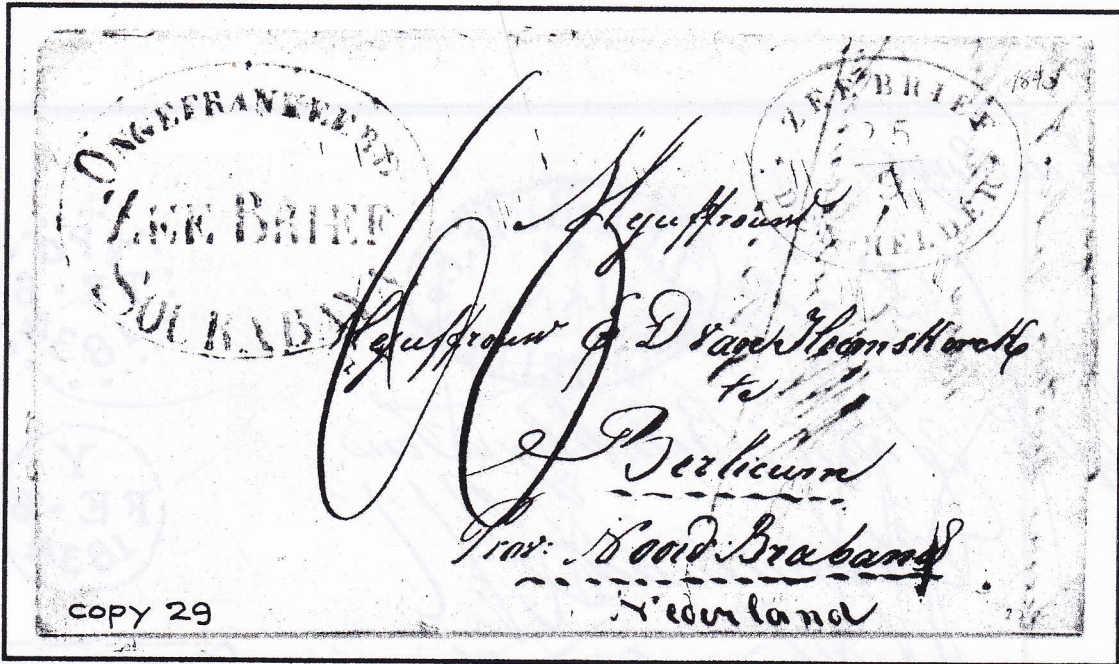 ONGEFRANKEERD
ZEE BRIEF
SOURABAYA
ZEE BRIEF
25
DEN HELDER
1843
60
Mejuffrouw
Mejuffrouw D van Heemskerck
te
Berlicum
Prov: Noord Braband
Nederland
copy 29